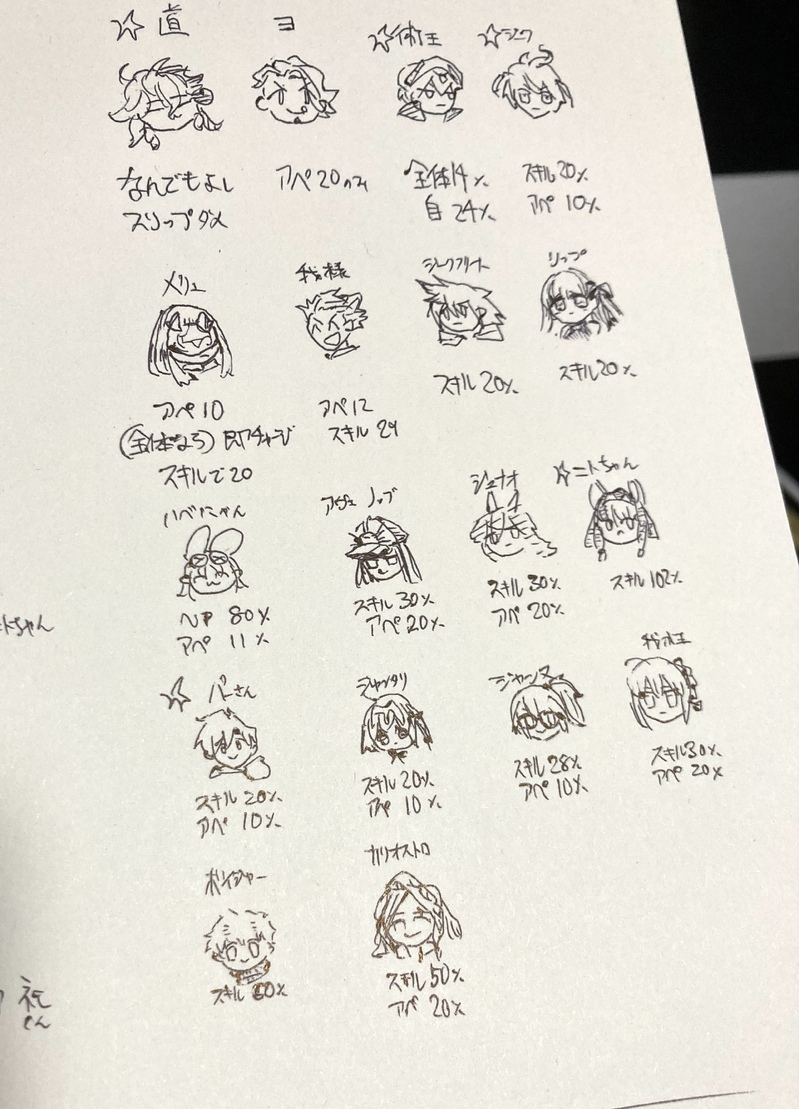 ☆直
ヨ
☆術王
☆ジーク
なんでもよし
スリップダメ
アペ20のみ
全体14%
自24%
スキル20%
アペ10%
メリュ
我様
ジークフリート
リップ
アペ10
(全体なら) 即アチャージ
スキルで20
アペ12
スキル29
スキル20%
スキル20%
ハベにゃん
アヴェノッブ
ジュナオ
☆ニトちゃん
NP 80%
アペ 11%
スキル30%
アペ20%
スキル30%
アペ20%
スキル102%
トちゃん
☆バーさん
シャンタリ
ジャンヌ
スキル20%
アペ10%
スキル20%
アペ10%
スキル28%
アペ10%
スキル30%
アペ20%
ボイジャー
カリオストロ
スキル
スキル50%
アペ20%